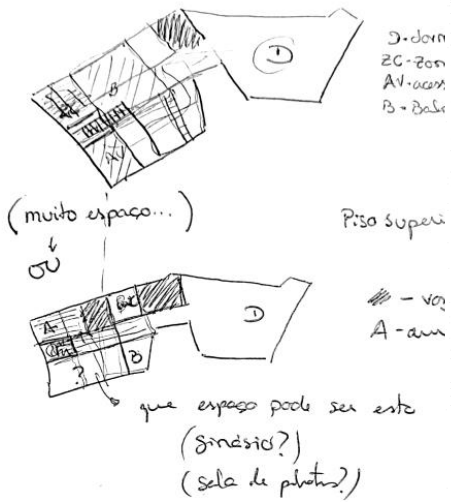 D
D-dorm
ZC-Zon
AV-acess
B
B-Balc
AV
(muito espaço...)
ou
Piso superi
A
D
B
?
A-arm
que espaço pode ser este
(ginásio?)
(sala de photos?)